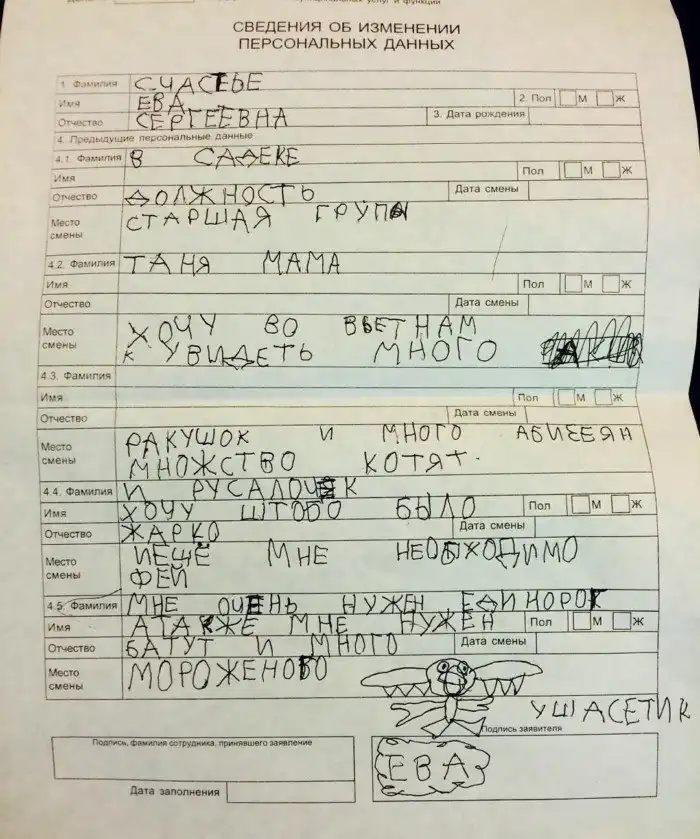 СВЕДЕНИЯ ОБ ИЗМЕНЕНИИ
ПЕРСОНАЛЬНЫХ ДАННЫХ
1. Фамилия СЧАСТЬЕ
Имя ЕВА 2. Пол М Ж
Отчество СЕРГЕЕВНА 3. Дата рождения
4. Предыдущие персональные данные
4.1. Фамилия В САДЕКЕ
Имя Пол М Ж
Отчество ДОЛЖНОСТЬ Дата смены
Место смены СТАРШАЯ ГРУПА
4.2. Фамилия ТАНЯ МАМА
Имя Пол М Ж
Отчество Дата смены
Место ХОЧУ ВО ВЬЕТНАМ
смены К УВИДЕТЬ МНОГО
4.3. Фамилия
Имя Пол М Ж
Отчество Дата смены
Место РАКУШОК И МНОГО АБИЗЕЯН
смены МНОЖСТВО КОТЯТ.
4.4. Фамилия И РУСАЛОЧЕК
Имя ХОЧУ ШТОБО БЫЛО Пол М Ж
Отчество ЖАРКО Дата смены
Место ИЕЩЁ МНЕ НЕОБХОДИМО
смены ФЕЙ
4.5. Фамилия МНЕ ОЧЕНЬ НУЖЕН ЕДИНОРОГ
Имя АТАКЖЕ МНЕ НУЖЕН Пол М Ж
Отчество БАТУТ И МНОГО Дата смены
Место смены МОРОЖЕНОВО
УШАСЕТИК
Подпись заявителя
Подпись, фамилия сотрудника, принявшего заявление
ЕВА
Дата заполнения